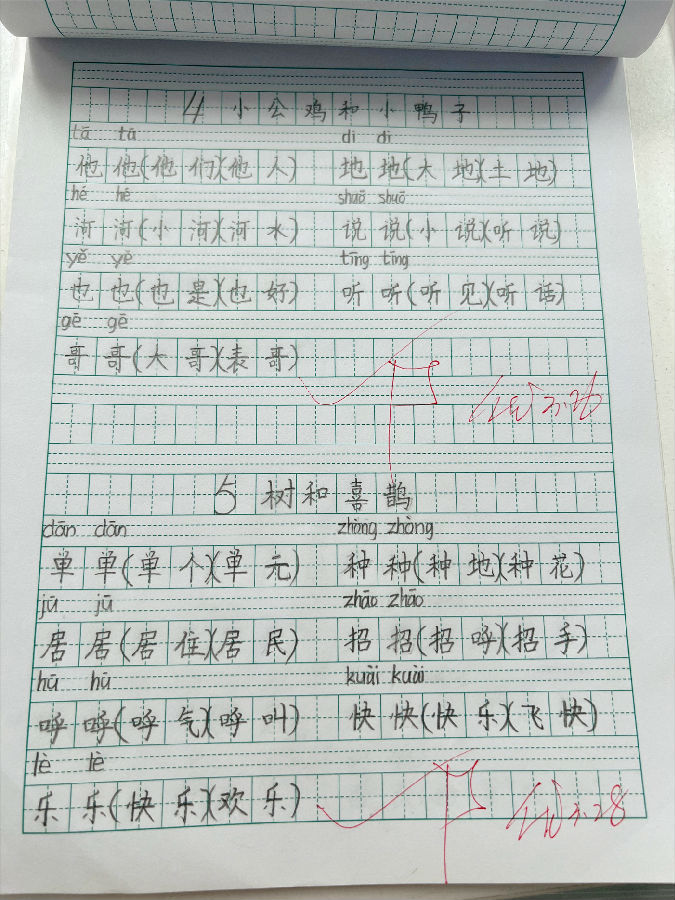 4 小公鸡和小鸭子
tā tā dì dì
他他(他们)(他人) 地地(大地)(土地)
hé hé shuō shuō
河河(小河)(河水) 说说(小说)(听说)
yě yě tīng tīng
也也(也是)(也好) 听听(听见)(听话)
gē gē
哥哥(大哥)(表哥)
5 树和喜鹊
dān dān zhòng zhòng
单单(单个)(单元) 种种(种地)(种花)
jū jū zhāo zhāo
居居(居住)(居民) 招招(招呼)(招手)
hū hū kuài kuài
呼呼(呼气)(呼叫) 快快(快乐)(飞快)
lè lè
乐乐(快乐)(欢乐)